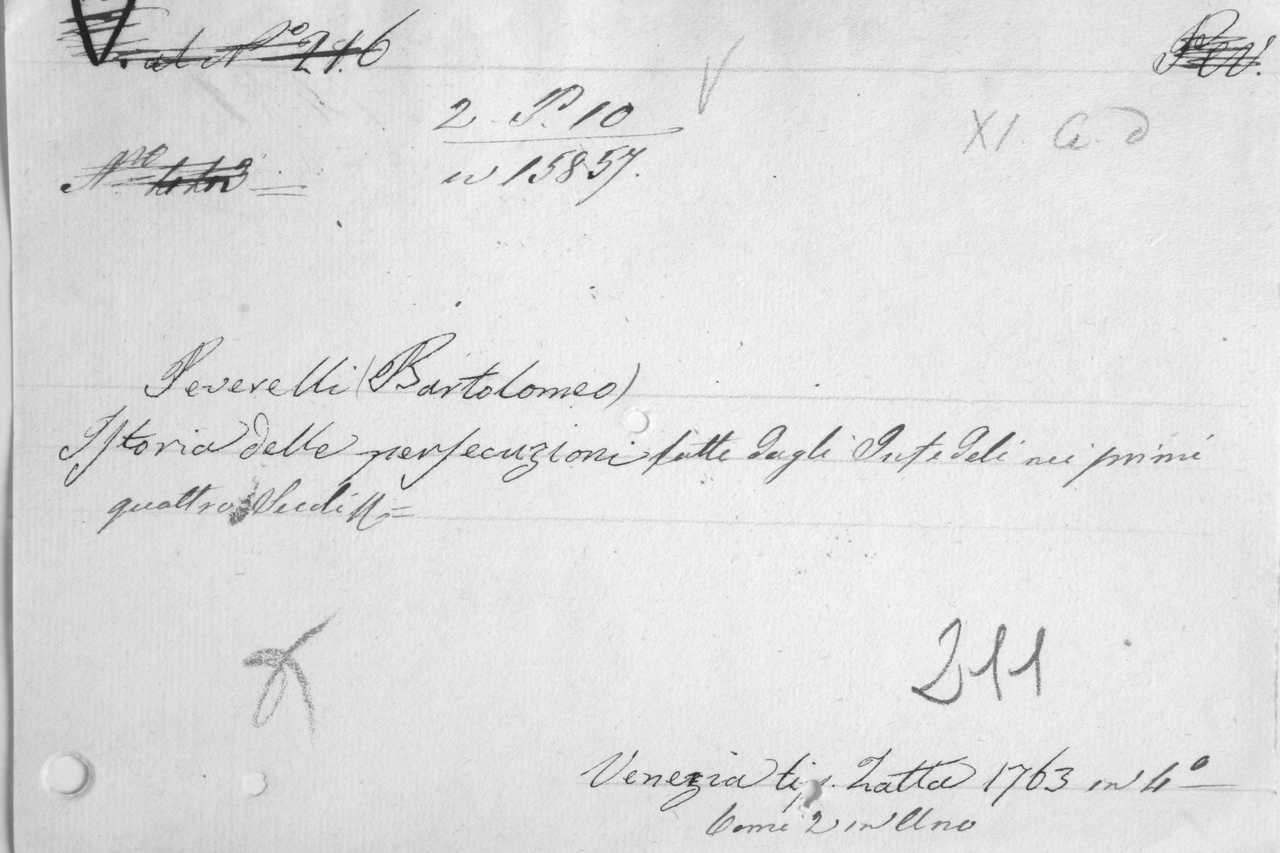 Nº 216
2. P. 10
XI. C. d
Nro
in 15857.
Peverelli (Bartolomeo)
Istoria delle persecuzioni fatte dagli Infedeli nei primi
quattro Secoli
211
Venezia tip. Zatta 1763 in 4º
tomi 2 in Uno